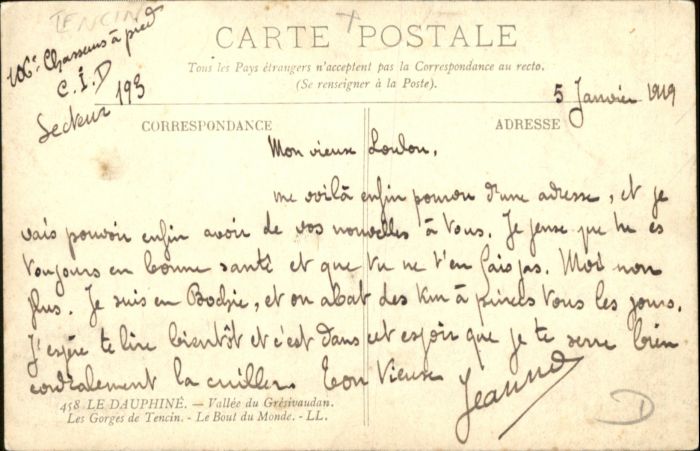 TENCIN
106e Chasseurs à pied
C.I.D
Secteur 193
CARTE POSTALE
Tous les Pays étrangers n'acceptent pas la Correspondance au recto.
(Se renseigner à la Poste).
5 Janvier 1919
CORRESPONDANCE
ADRESSE
Mon vieux Loulou,
me voilà enfin pourvu d'une adresse, et je
vais pouvoir enfin avoir de vos nouvelles à tous. Je pense que tu es
toujours en bonne santé et que tu ne t'en fais pas. Moi non
plus. Je suis en Bochie, et on abat des Km à pinces tous les jours.
J'espère te lire bientôt et c'est dans cet espoir que je te serre bien
cordialement la cuiller. Ton Vieux
458 LE DAUPHINÉ. — Vallée du Grésivaudan.
Les Gorges de Tencin. - Le Bout du Monde. - LL.
D